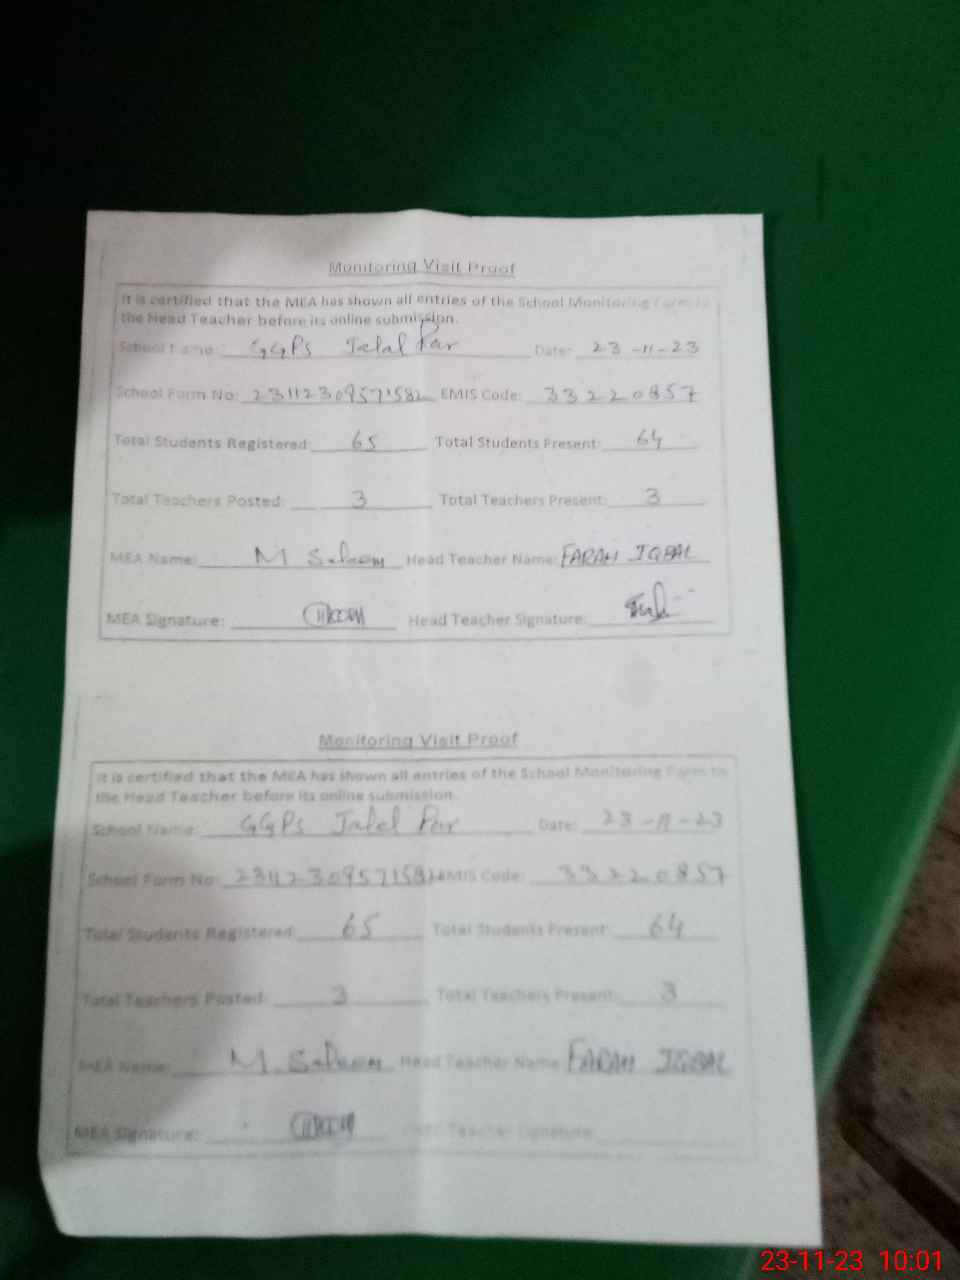 Monitoring Visit Proof
It is certified that the MEA has shown all entries of the School Monitoring Form to
the Head Teacher before its online submission.
School Name: GGPS Jalal Par Date: 23-11-23
School Form No: 23112309571582 EMIS Code: 33220857
Total Students Registered: 65 Total Students Present: 64
Total Teachers Posted: 3 Total Teachers Present: 3
MEA Name: M Saleem Head Teacher Name: FARAH IQBAL
MEA Signature: Head Teacher Signature:
Monitoring Visit Proof
It is certified that the MEA has shown all entries of the School Monitoring Form to
the Head Teacher before its online submission.
School Name: GGPS Jalal Par Date: 23-11-23
School Form No: 23112309571582 EMIS Code: 33220857
Total Students Registered: 65 Total Students Present: 64
Total Teachers Posted: 3 Total Teachers Present: 3
MEA Name: M. Saleem Head Teacher Name FARAH IQBAL
MEA Signature: Head Teacher Signature:
23-11-23 10:01